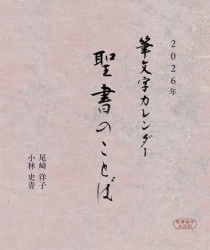 2026年
筆文字カレンダー
聖書のことば
尾崎 洋子
小林 史青